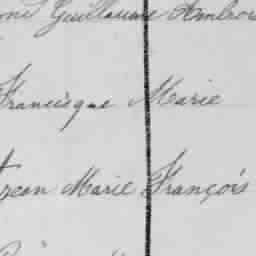 Guillaume Ambroi
Francisque Marie
Jean Marie François